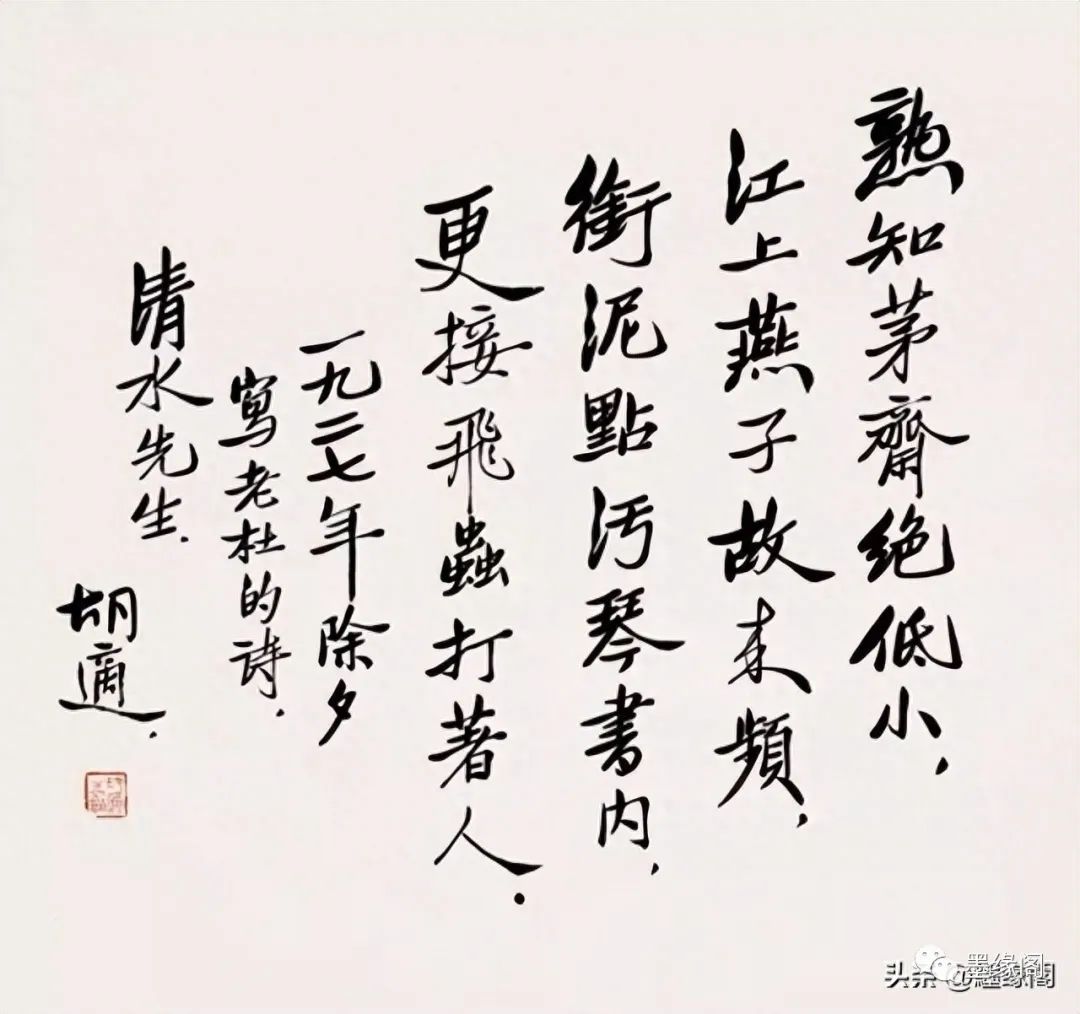 熟知茅齋絕低小，
江上燕子故来頻，
銜泥點汚琴書內，
更接飛蟲打著人．
一九二七年除夕
寫老杜的詩．
清水先生．
胡適．
墨缘阁
头条@墨缘阁